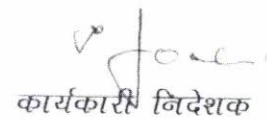 कार्यकारी निदेशक